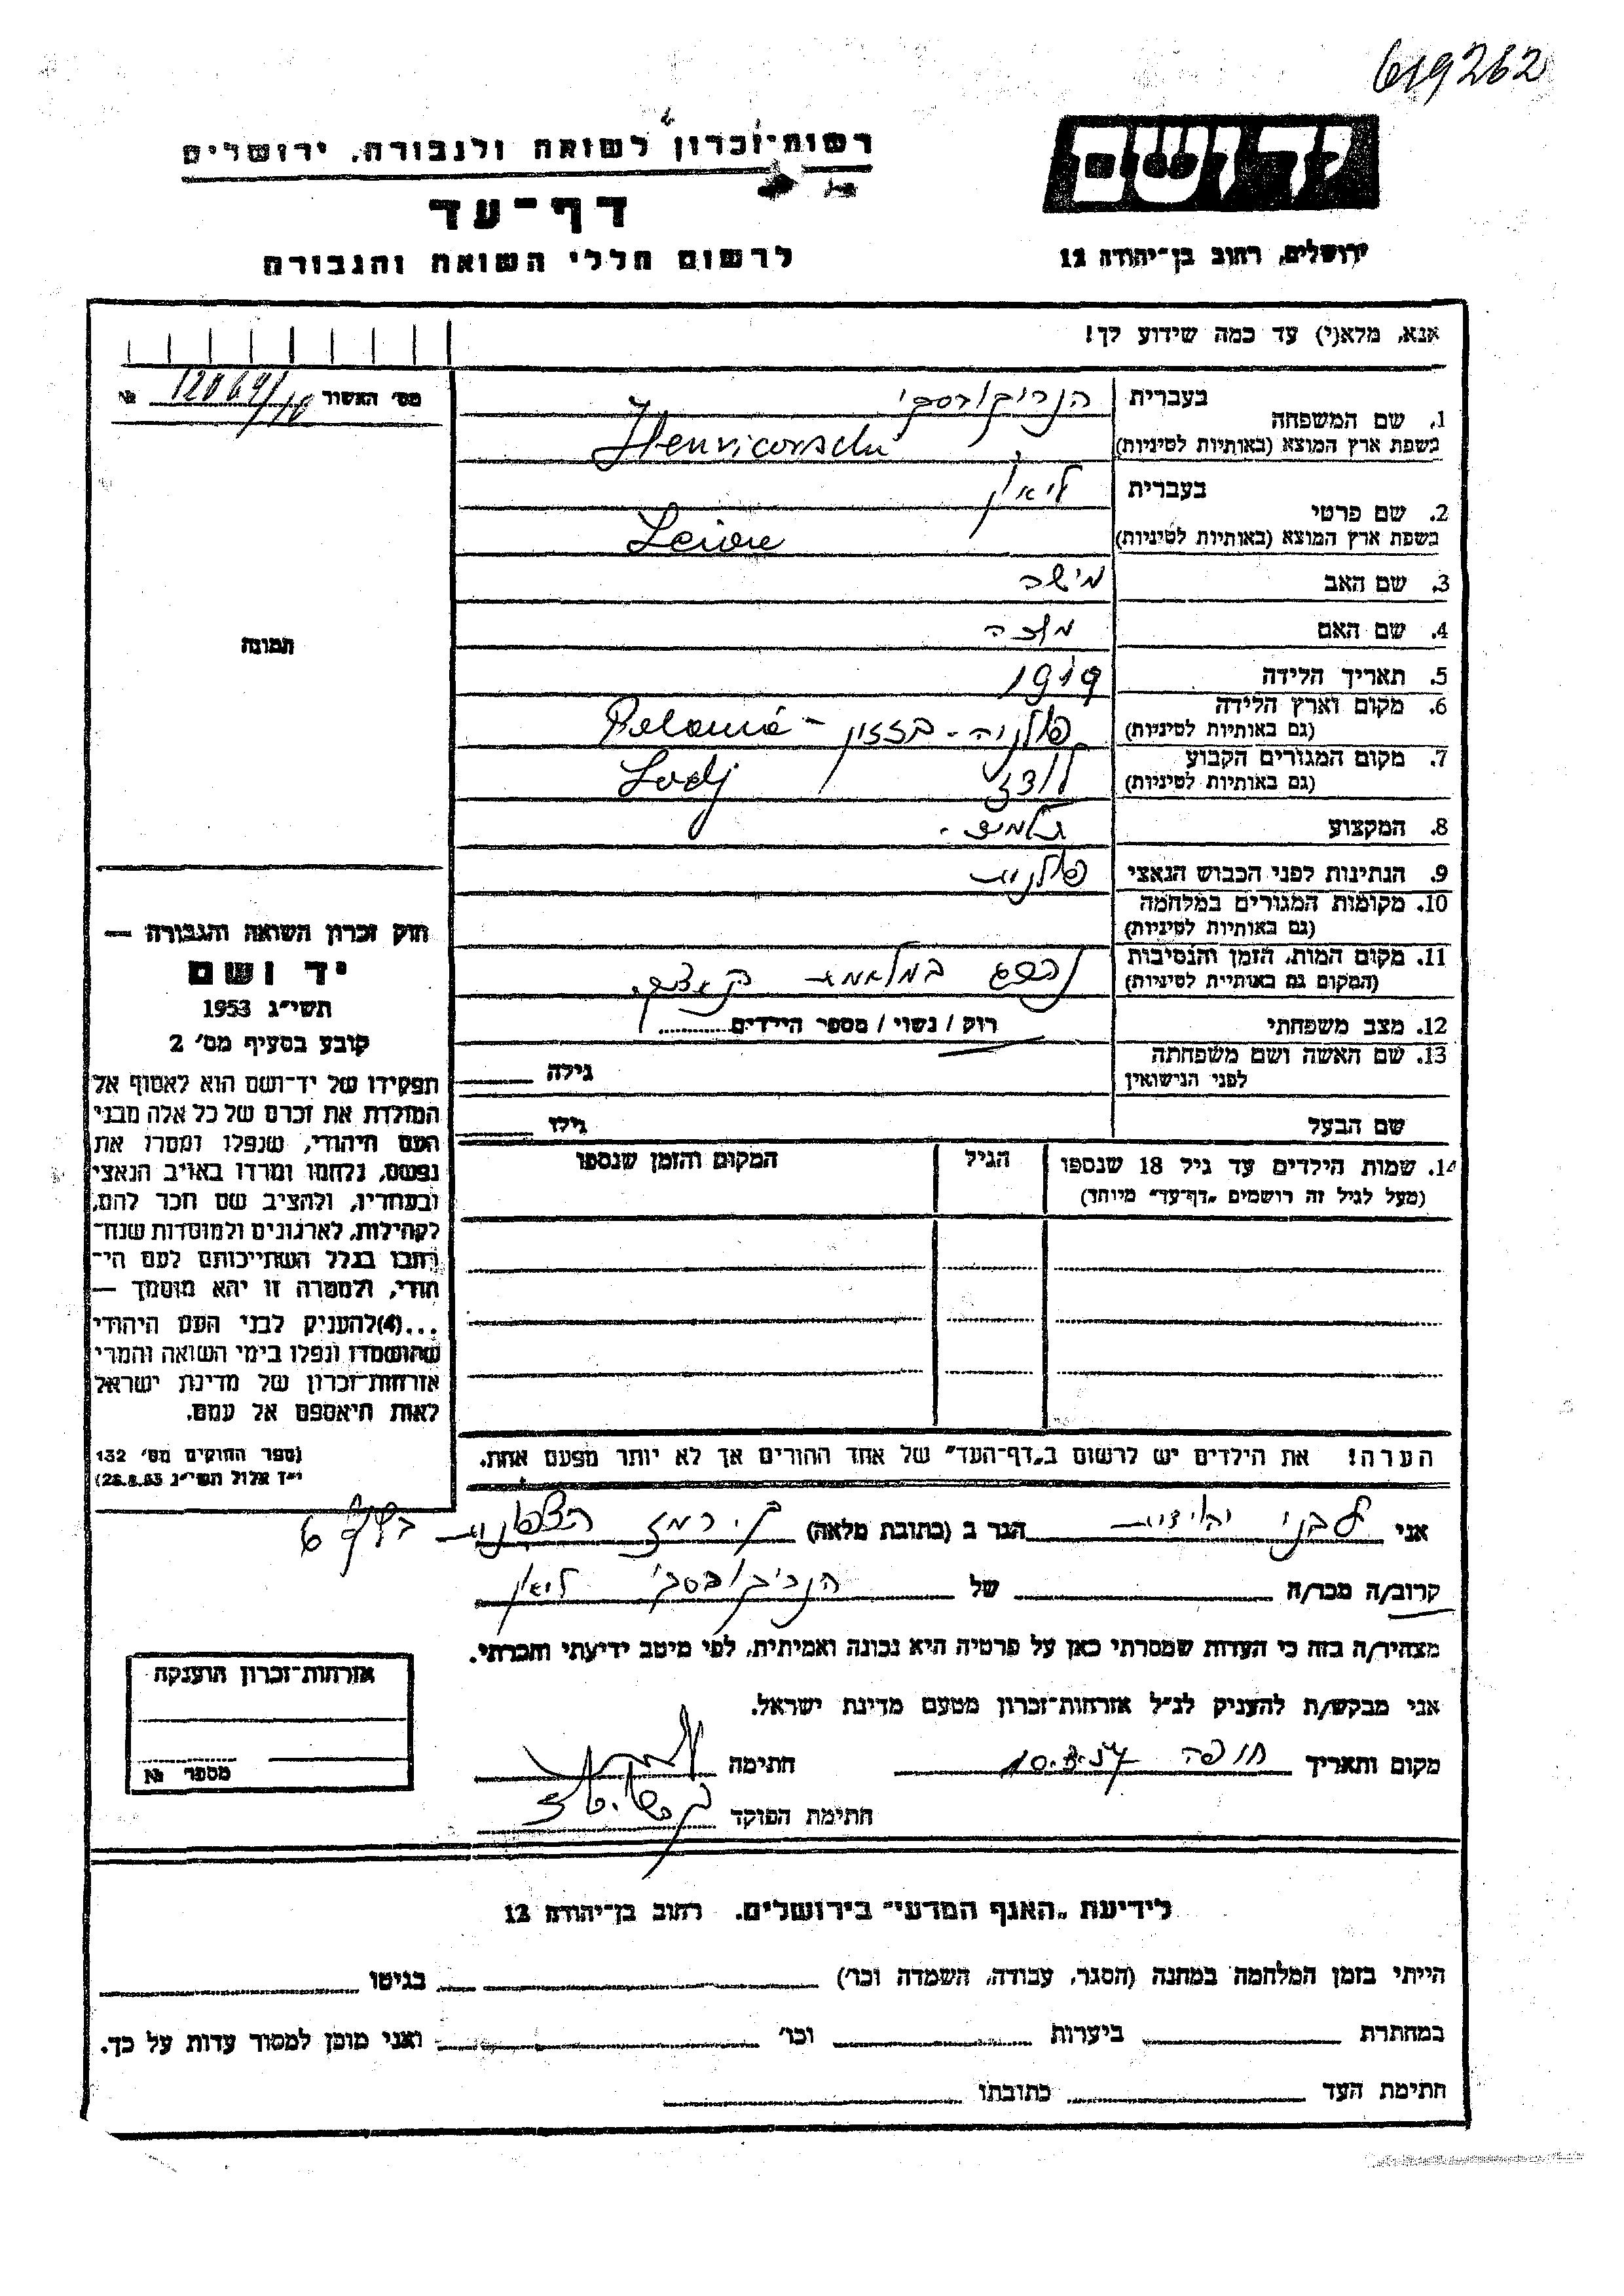 619262
רשות־זכרון לשואה ולגבורה, ירושלים
יד ושם
דף־עד
לרשום חללי השואה והגבורה
ירושלים, רחוב בן־יהודה 12
אנא, מלא(י) עד כמה שידוע לך!
מס' האשור 12064/10 №
1. שם המשפחה
בעברית הנריקורסקי
בשפת ארץ המוצא (באותיות לטיניות) Henricorschi
2. שם פרטי
בעברית ליאון
בשפת ארץ המוצא (באותיות לטיניות)
3. שם האב מישה
4. שם האם
5. תאריך הלידה 1919
6. מקום וארץ הלידה
(גם באותיות לטיניות) פולניה - Polonia -
7. מקום המגורים הקבוע
(גם באותיות לטיניות) לודז Lodj
8. המקצוע
9. הנתינות לפני הכבוש הנאצי פולנית
10. מקומות המגורים במלחמה
(גם באותיות לטיניות)
11. מקום המות, הזמן והנסיבות
(המקום גם באותיות לטיניות) נהרג במלחמת
12. מצב משפחתי רוק / נשוי / מספר הילדים
13. שם האשה ושם משפחתה
לפני הנישואין גילה
שם הבעל גילו
14. שמות הילדים עד גיל 18 שנספו
(מעל לגיל זה רושמים „דף־עד" מיוחד)
הגיל
המקום והזמן שנספו
תמונה
חוק זכרון השואה והגבורה —
יד ושם
תשי"ג 1953
קובע בסעיף מס' 2
תפקידו של יד־ושם הוא לאסוף אל
המולדת את זכרם של כל אלה מבני
העם היהודי, שנפלו ומסרו את
נפשם, נלחמו ומרדו באויב הנאצי
ובעוזריו, ולהציב שם וזכר להם,
לקהילות, לארגונים ולמוסדות שנח־
רבו בגלל השתייכותם לעם הי־
הודי, ולמטרה זו יהא מוסמך —
...(4)להעניק לבני העם היהודי
שהושמדו ונפלו בימי השואה והמרי
אזרחות־זכרון של מדינת ישראל
לאות היאספם אל עמם.
(ספר החוקים מס' 132
י"ז אלול תשי"ג 28.8.53)
הערה! את הילדים יש לרשום ב„דף־העד" של אחד ההורים אך לא יותר מפעם אחת.
אני לבני יהודית הגר ב (כתובת מלאה) ק. רמז
קרוב/ה מכר/ה של הנריקורסקי ליאון
מצהיר/ה בזה כי העדות שמסרתי כאן על פרטיה היא נכונה ואמיתית, לפי מיטב ידיעתי והכרתי.
אני מבקש/ת להעניק לנ"ל אזרחות־זכרון מטעם מדינת ישראל.
מקום ותאריך חיפה חתימה
חתימת הפוקד
אזרחות־זכרון הוענקה
מספר №
לידיעת „האגף המדעי" בירושלים. רחוב בן־יהודה 12
הייתי בזמן המלחמה במחנה (הסגר, עבודה, השמדה וכו') בגיטו
במחתרת ביערות וכו' ואני מוכן למסור עדות על כך.
חתימת העד כתובתו